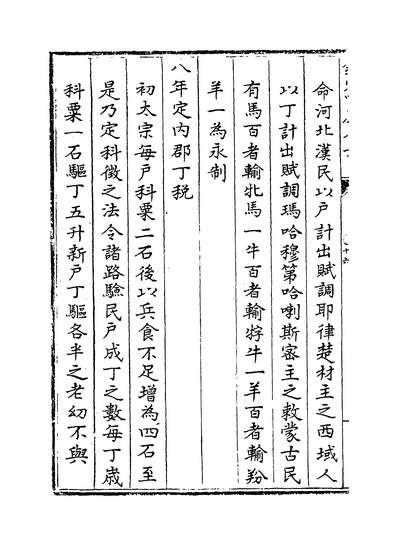 命河北漢民以戶計出賦調耶律楚材主之西域人
以丁計出賦調瑪哈穆第哈喇斯密主之敕蒙古民
有馬百者輸牝馬一牛百者輸牸牛一羊百者輸羒
羊一為永制
八年定內郡丁稅
初太宗每戶科粟二石後以兵食不足增為四石至
是乃定科徵之法令諸路驗民戶成丁之數每丁歲
科粟一石驅丁五升新戶丁驅各半之老幼不與